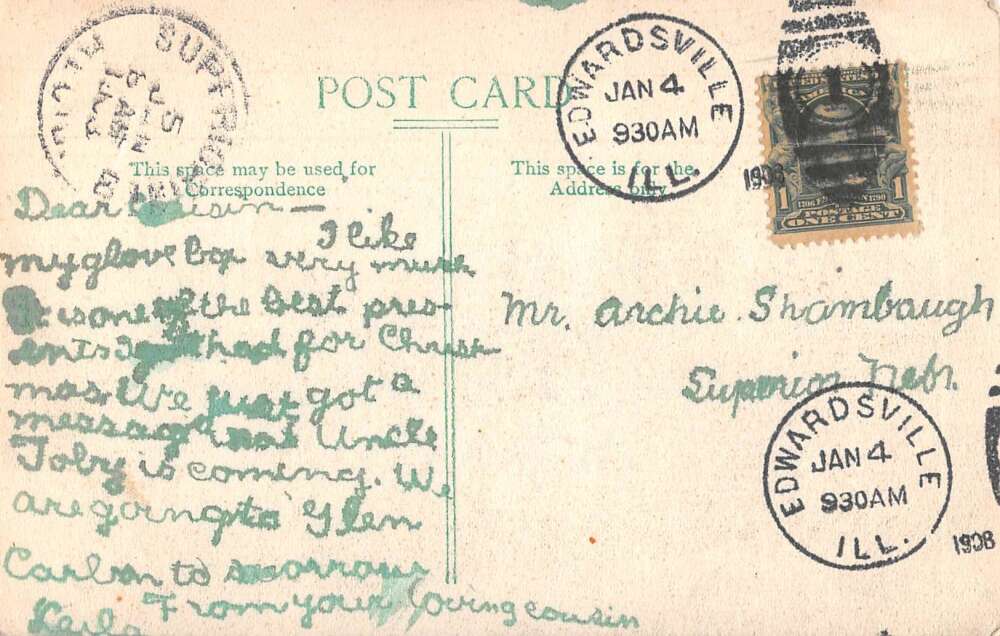 SUPERIOR
POST CARD
EDWARDSVILLE
JAN 4
930AM
ILL.
1908
POSTAGE
ONE CENT
1 1
This space may be used for
Correspondence
This space is for the
Address only
Dear Cousin —
I like
my glove box very much
It is one of the best pres-
ents I had for Christ
mas. We just got a
message that Uncle
Toby is coming. We
are going to Glen
Carbon to morrow
From your loving cousin
Leila
Mr. Archie Shambaugh
Superior Nebr.
EDWARDSVILLE
JAN 4
930AM
ILL.
1908